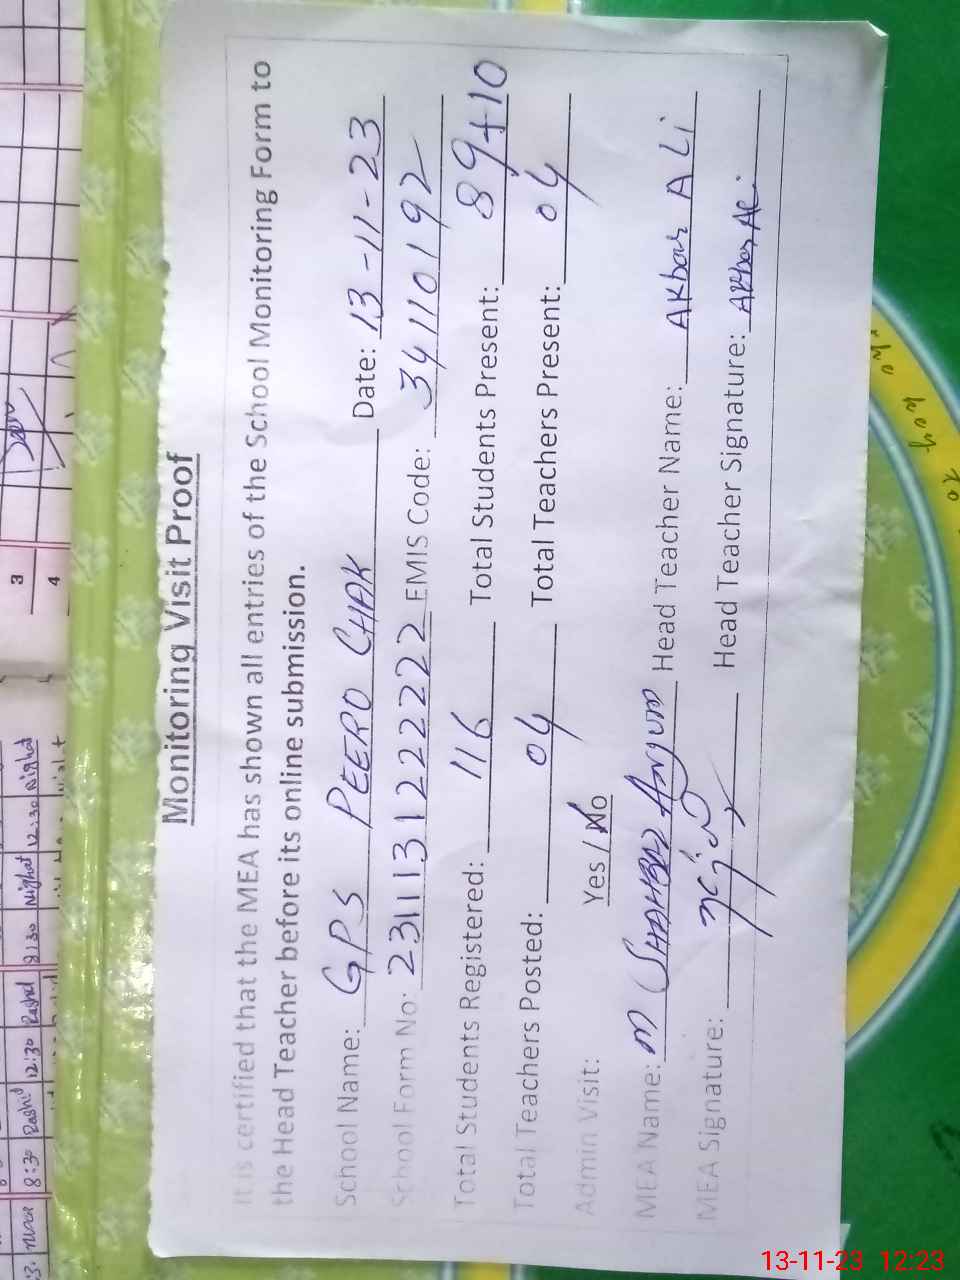 Monitoring Visit Proof
It is certified that the MEA has shown all entries of the School Monitoring Form to
the Head Teacher before its online submission.
School Name: GPS PEERO CHAK Date: 13-11-23
School Form No: 231131222222 EMIS Code: 34110192
Total Students Registered: 116 Total Students Present: 89+10
Total Teachers Posted: 04 Total Teachers Present: 04
Admin Visit: Yes / No
MEA Name: M SHAHBAZ Anjum Head Teacher Name: Akbar ALi
MEA Signature: Head Teacher Signature: Akbar Ali
3
4
8:30 Rashid 12:30 Rashid 8:30 Nighat 12:30 Nighat
13-11-23 12:23